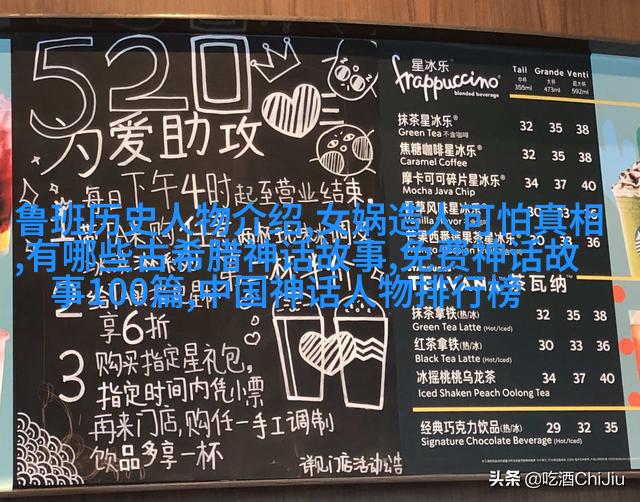 520
为爱助攻
每日下午4时起至营业结束,
鲁班历史人物介绍,女娲造人可怕真相
,有哪些古希腊神话故事,免费神话故
事100篇,中国神话人物排行榜
享6折
3 购买指定星礼包,
指定时间内凭小票
再来门店,购任一手工调制
饮品多享一杯
详见门店活动公告
星冰乐®
frappuccino®
blended beverage
Tall Grande Venti
中杯 大杯 超大杯
355ml 473ml 592ml
抹茶星冰乐® 32 35 38
Green Tea 不含咖啡
焦糖咖啡星冰乐® 32 35 38
Caramel Coffee
摩卡可可碎片星冰乐® 34 37 40
Mocha Java Chip
TEAVANA™ 茶瓦纳™
抹茶拿铁(热/冰) 32 35 38
Green Tea Latte (Hot/Iced)
红茶拿铁(热/冰) 30 33 36
Black Tea Latte (Hot/Iced)
冰摇桃桃乌龙茶 34 37 40
Iced Shaken Peach Oolong Tea
经典巧克力饮品(热/冰) 29 32 35
Signature Chocolate Beverage (Hot/Iced)
头条 @吃酒ChiJiu